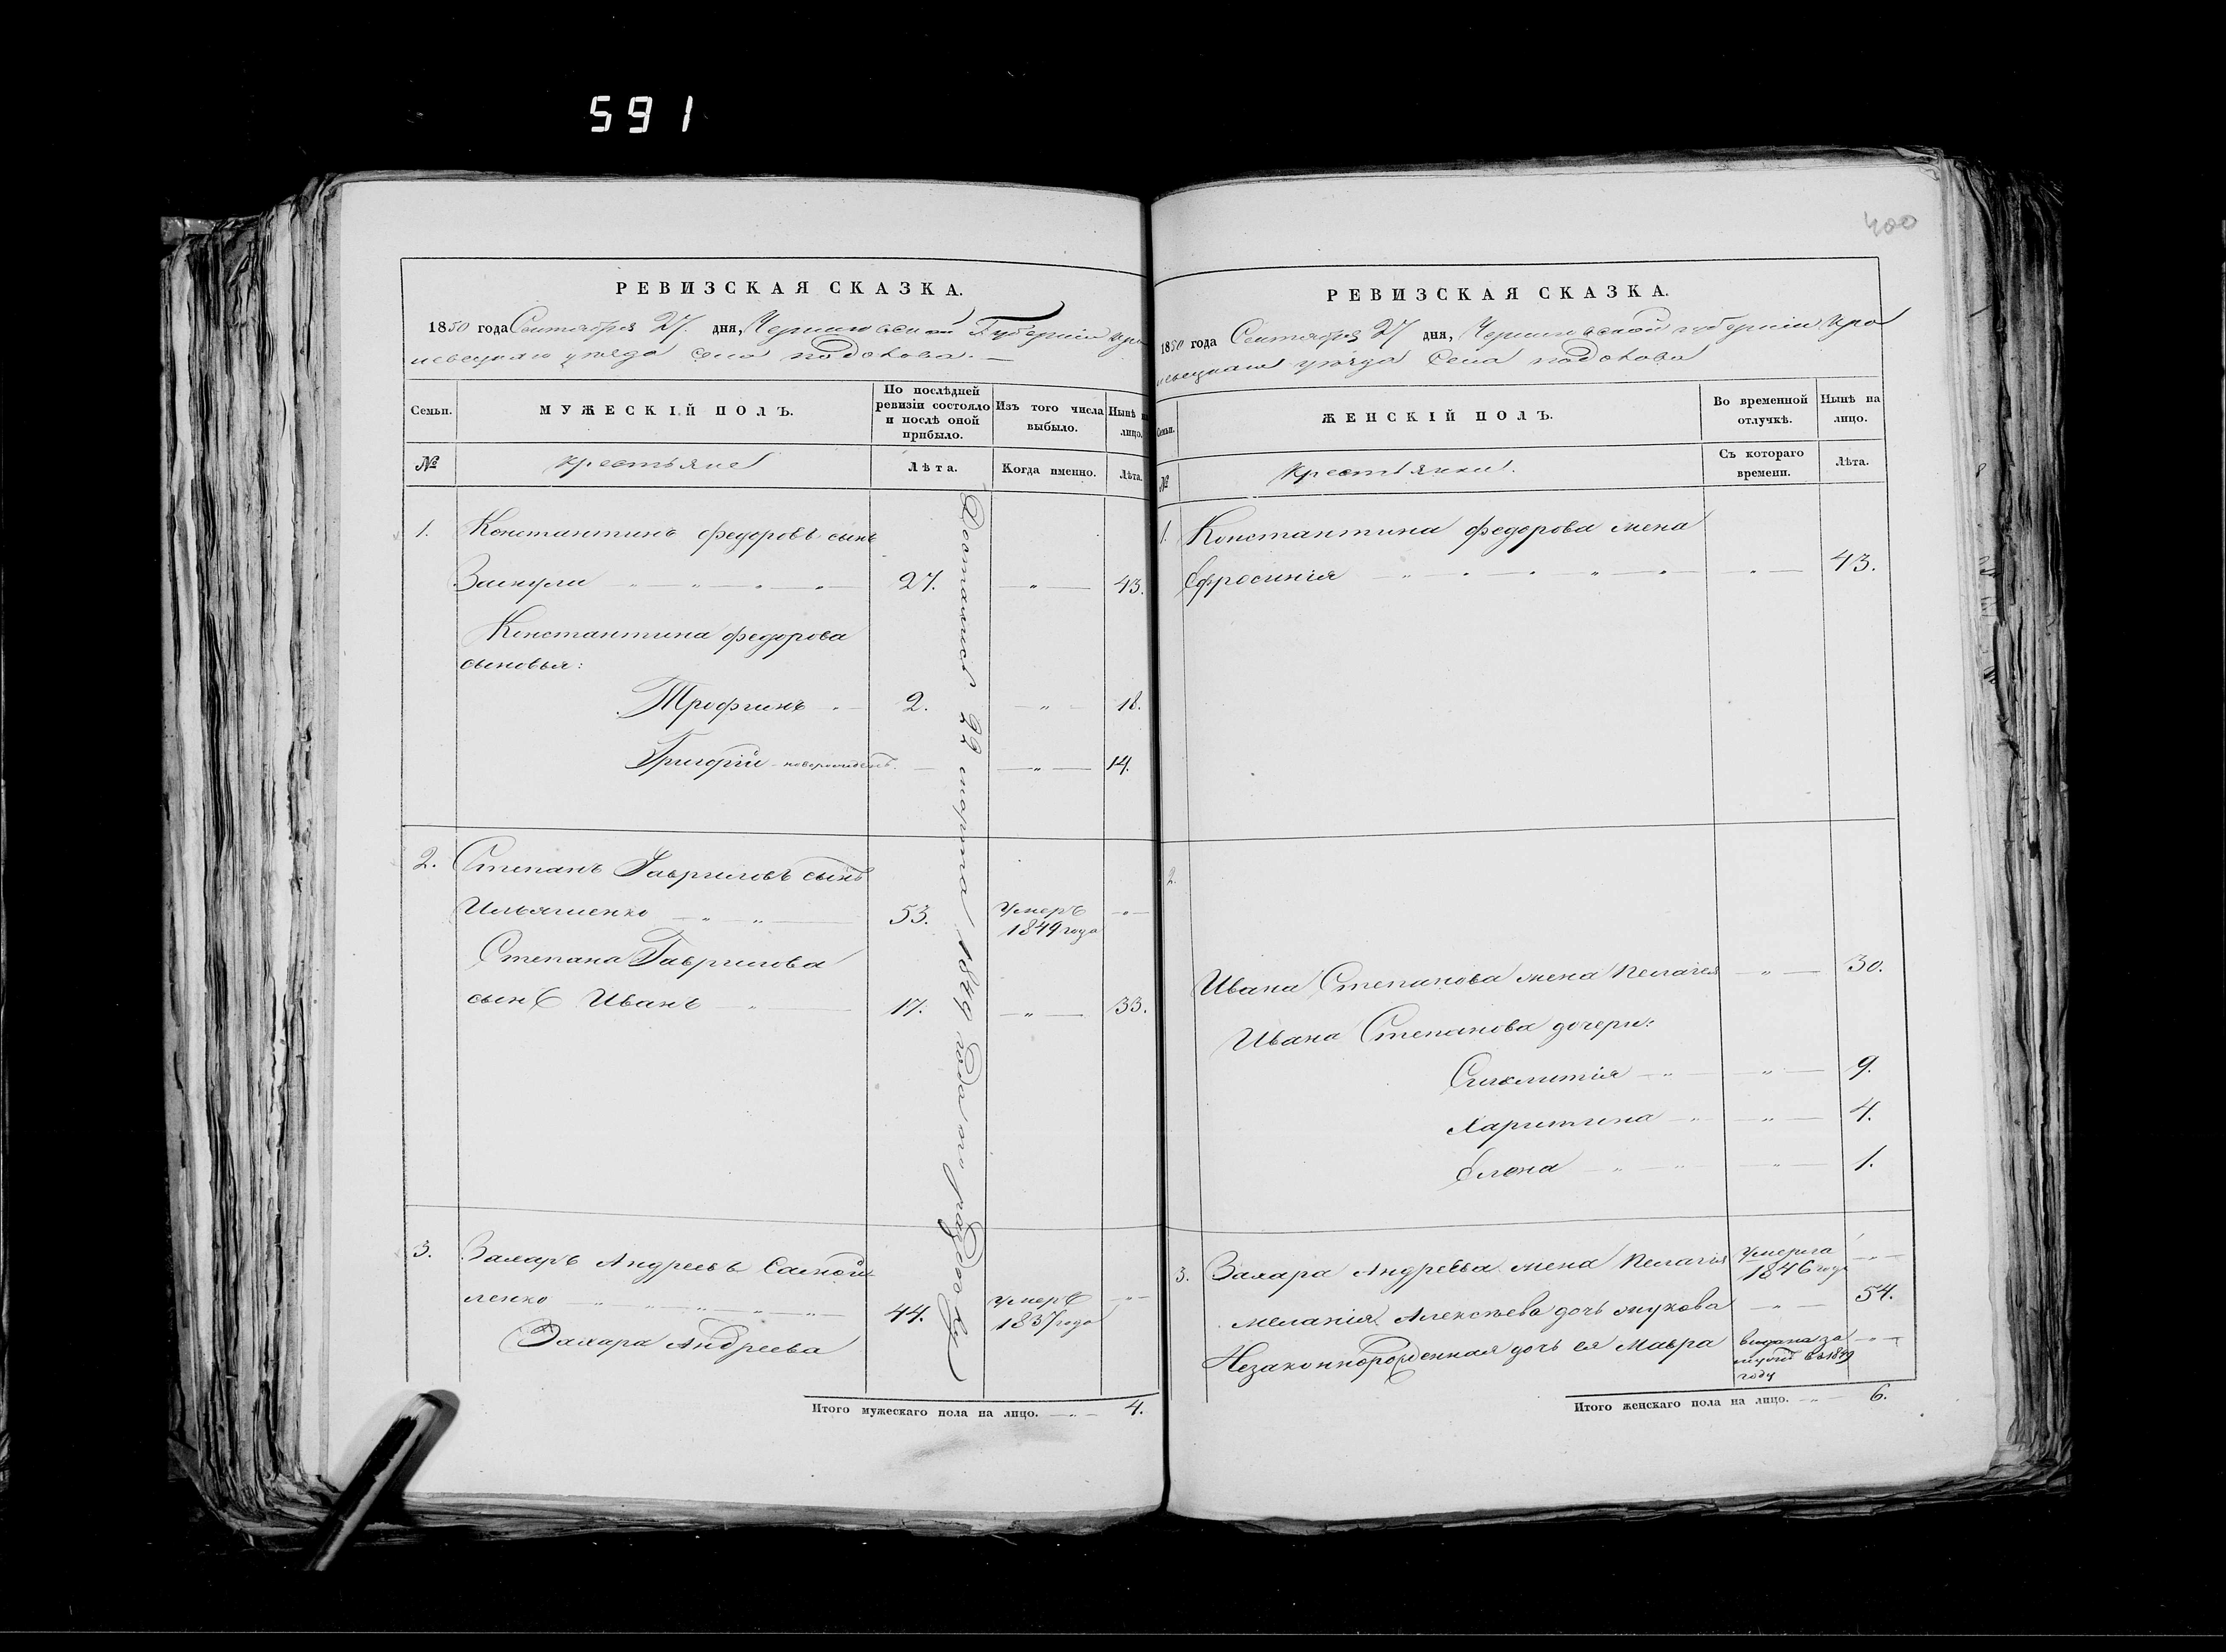 591
400
РЕВИЗСКАЯ СКАЗКА.
1850 года Сентября 27. дня, Черниговской Губерніи Кро
левецкаго уезда села подолова. —
Семьи.
МУЖЕСКІЙ ПОЛЪ.
По послѣдней ревизіи состояло и послѣ оной прибыло.
Изъ того числа выбыло.
Нынѣ на лицо.
№
крестьяне
Лѣта.
Когда именно.
Лѣта.
1. Константинъ федоровъ сынъ
27. 43.
Константина федорова
сыновья:
Трофимъ 2. 18.
Григорій - новорожденъ. 14.
2. Степанъ Гавриловъ сынъ
Ильяшенко 53. Умеръ
1849 года
Степана Гаврилова
сынъ Иванъ 17. 33.
3. Захаръ Андреевъ Самой
ленко 44. умеръ
1837 года
Захара Андреева
Достались 22 марта 1849 года по разделу
Итого мужескаго пола на лицо. 4.
РЕВИЗСКАЯ СКАЗКА.
1850 года Сентября 27 дня, Черниговской губерніи Кро
левецкаго уѣзда Села подолова
Семьи.
ЖЕНСКІЙ ПОЛЪ.
Во временной отлучкѣ.
Нынѣ на лицо.
№
Крестьянки.
Съ котораго времени.
Лѣта.
1. Константина федорова жена
Ефросинія 43.
2.
Ивана Степанова жена Пелагея 30.
Ивана Степанова дочери:
Синклитія 9.
Харитина 4.
Елена 1.
3. Захара Андреева жена Пелагія Умерла
1846 года
Меланія Алексѣева дочь жукова 54.
Незаконнорожденная дочь ея Мавра выдана за
мужъ въ 1849
году
Итого женскаго пола на лицо. 6.